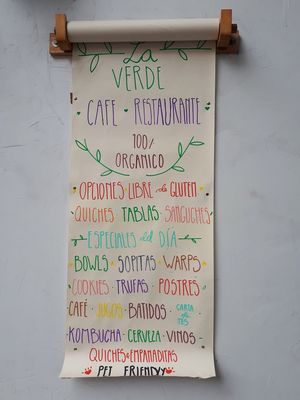 La
VERDE
CAFE · RESTAURANTE
100%
ORGANICO
OPCIONES · LIBRE de GLUTEN
QUICHES · TABLAS · SANGUCHES
ESPECIALES del DÍA
BOWLS · SOPITAS · WARPS
COOKIES · TRUFAS · POSTRES
CAFÉ · JUGOS · BATIDOS · CARTA de TÉS
KOMBUCHA · CERVEZA · VINOS
QUICHES & EMPANADITAS
PET FRIENDLY